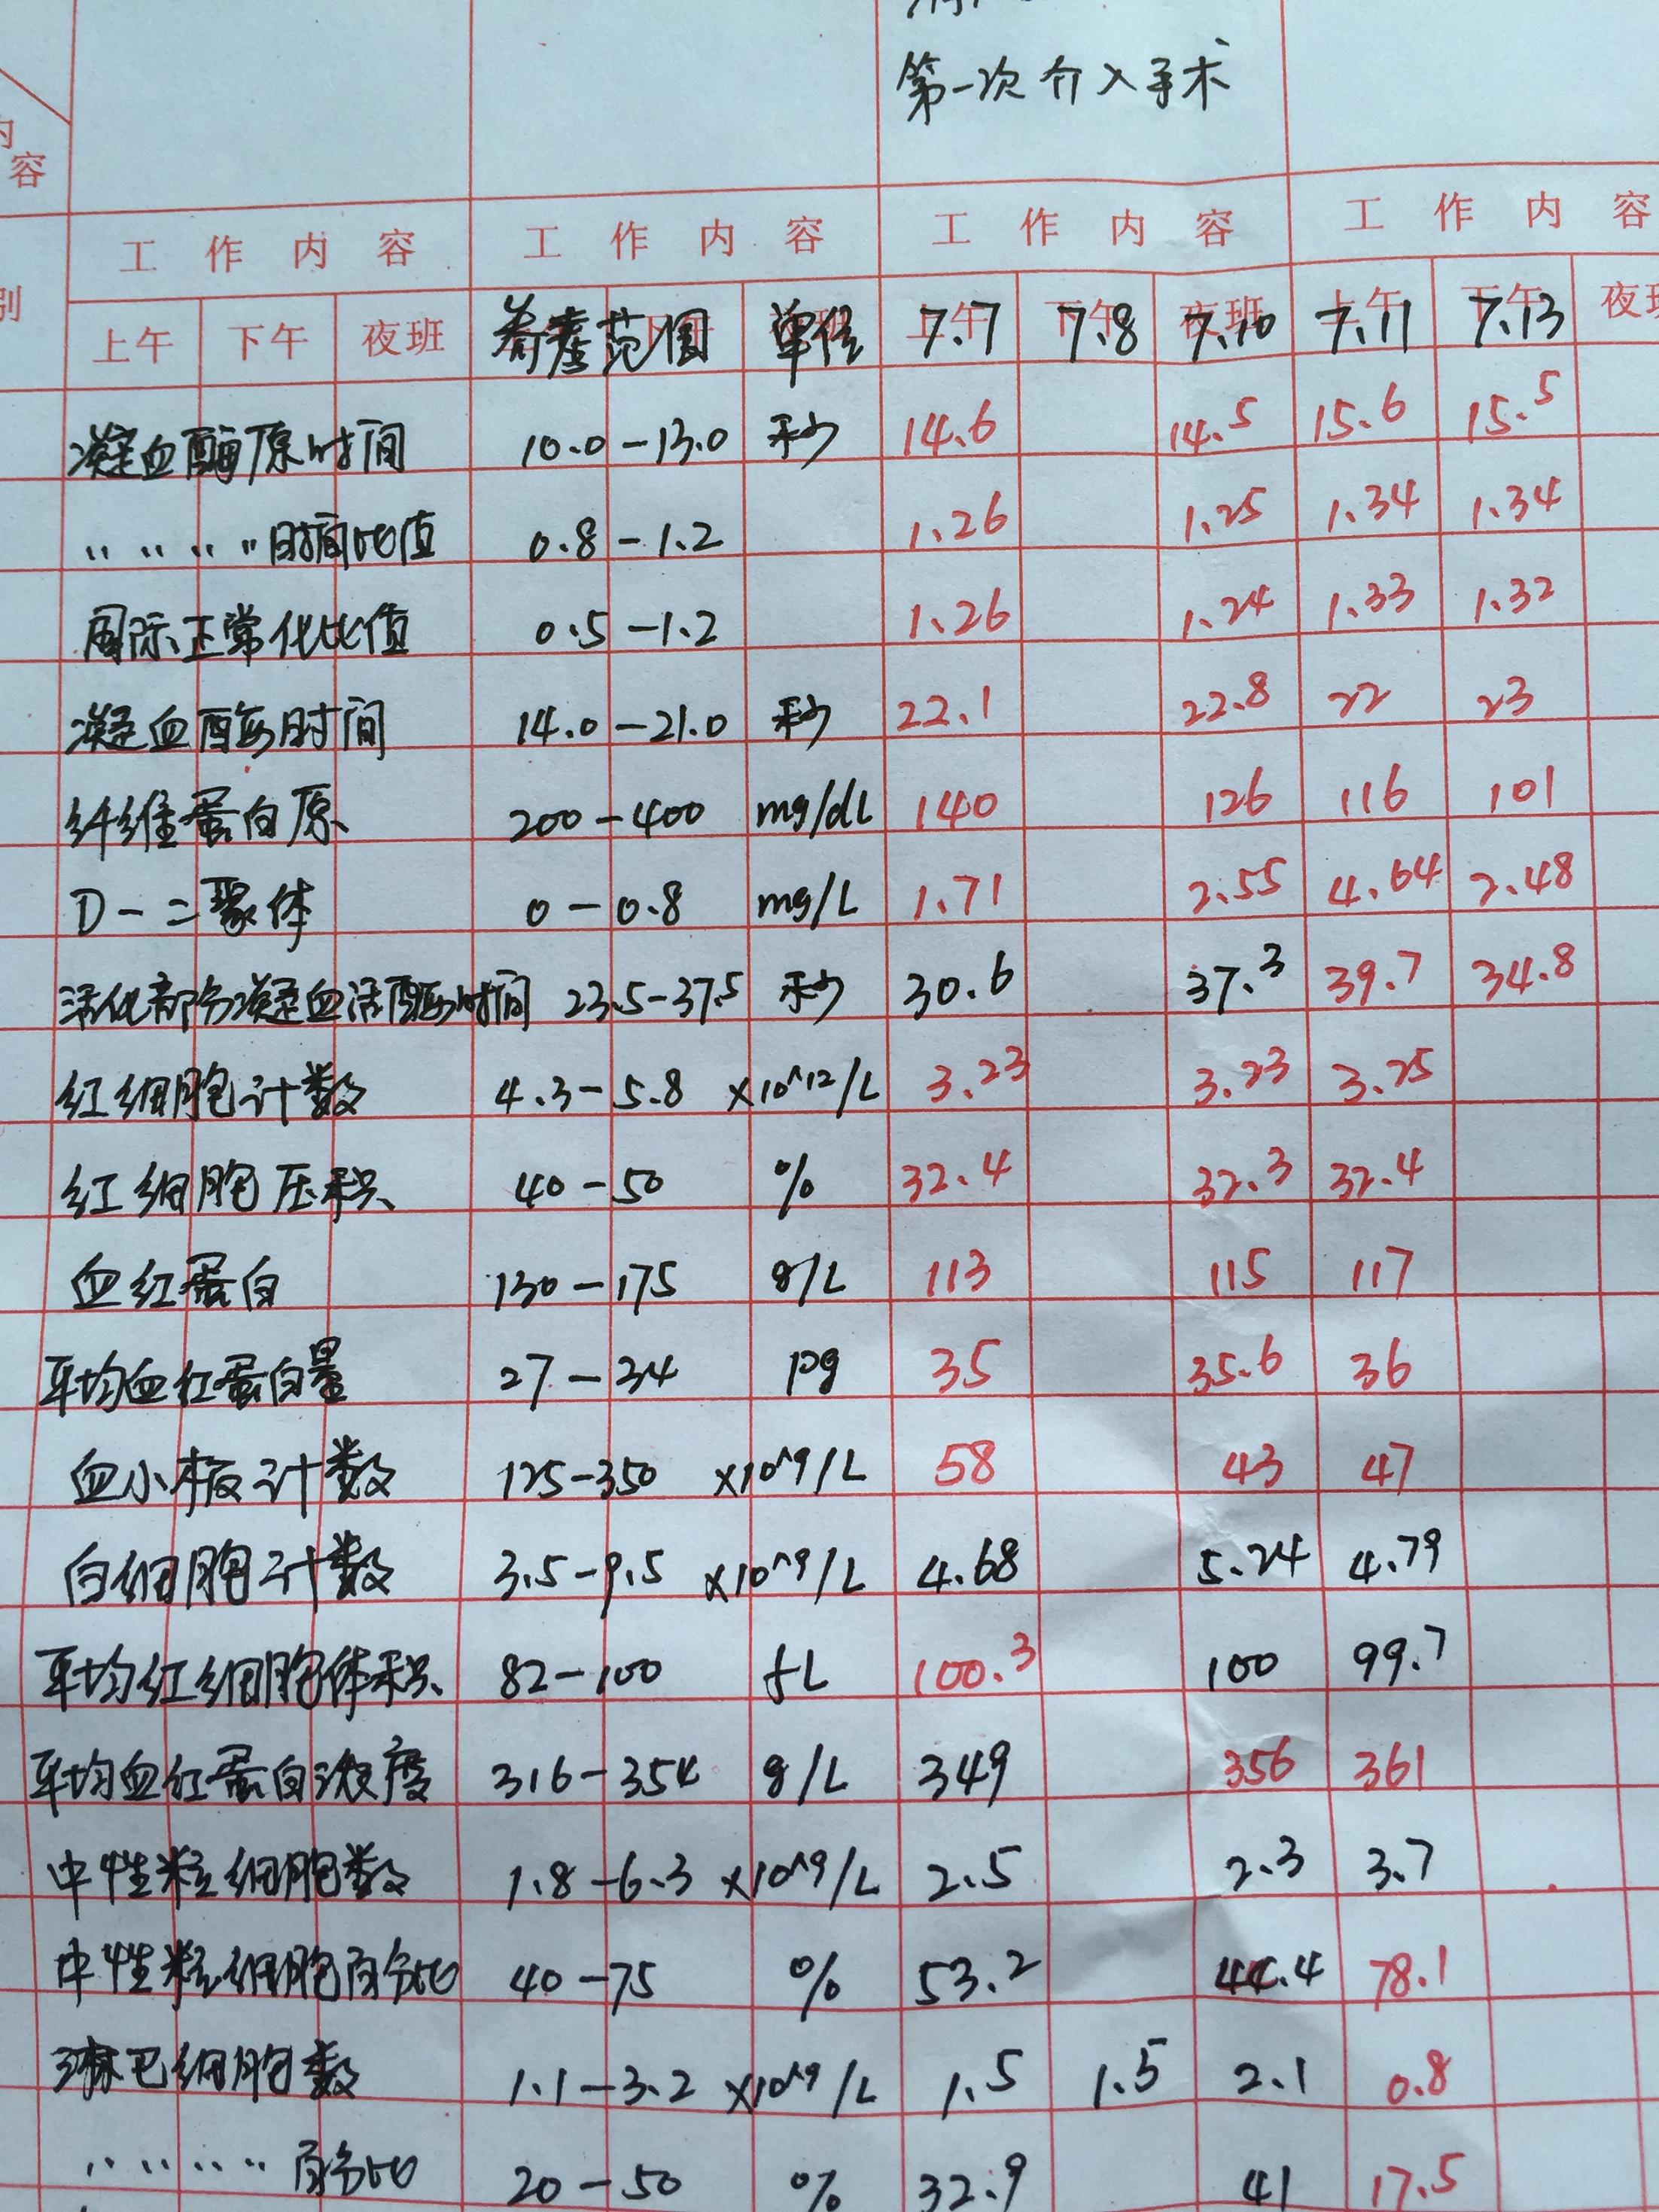 第一次介入手术
内容
工作内容 工作内容 工作内容 工作内容
别 上午 下午 夜班 参考范围 单位 7.7 7.8 7.10 7.11 7.13 夜班
凝血酶原时间 10.0-13.0 秒 14.6 14.5 15.6 15.5
〃〃〃〃时间比值 0.8-1.2 1.26 1.25 1.34 1.34
国际正常化比值 0.5-1.2 1.26 1.24 1.33 1.32
凝血酶时间 14.0-21.0 秒 22.1 22.8 22 23
纤维蛋白原 200-400 mg/dL 140 126 116 101
D-二聚体 0-0.8 mg/L 1.71 2.55 4.64 2.48
活化部分凝血活酶时间 23.5-37.5 秒 30.6 37.3 39.7 34.8
红细胞计数 4.3-5.8 ×10^12/L 3.23 3.23 3.25
红细胞压积 40-50 % 32.4 32.3 32.4
血红蛋白 130-175 g/L 113 115 117
平均血红蛋白量 27-34 pg 35 35.6 36
血小板计数 125-350 ×10^9/L 58 43 47
白细胞计数 3.5-9.5 ×10^9/L 4.68 5.24 4.79
平均红细胞体积 82-100 fL 100.3 100 99.7
平均血红蛋白浓度 316-354 g/L 349 356 361
中性粒细胞数 1.8-6.3 ×10^9/L 2.5 2.3 3.7
中性粒细胞百分比 40-75 % 53.2 44.4 78.1
淋巴细胞数 1.1-3.2 ×10^9/L 1.5 1.5 2.1 0.8
〃〃〃〃〃百分比 20-50 % 32.9 41 17.5